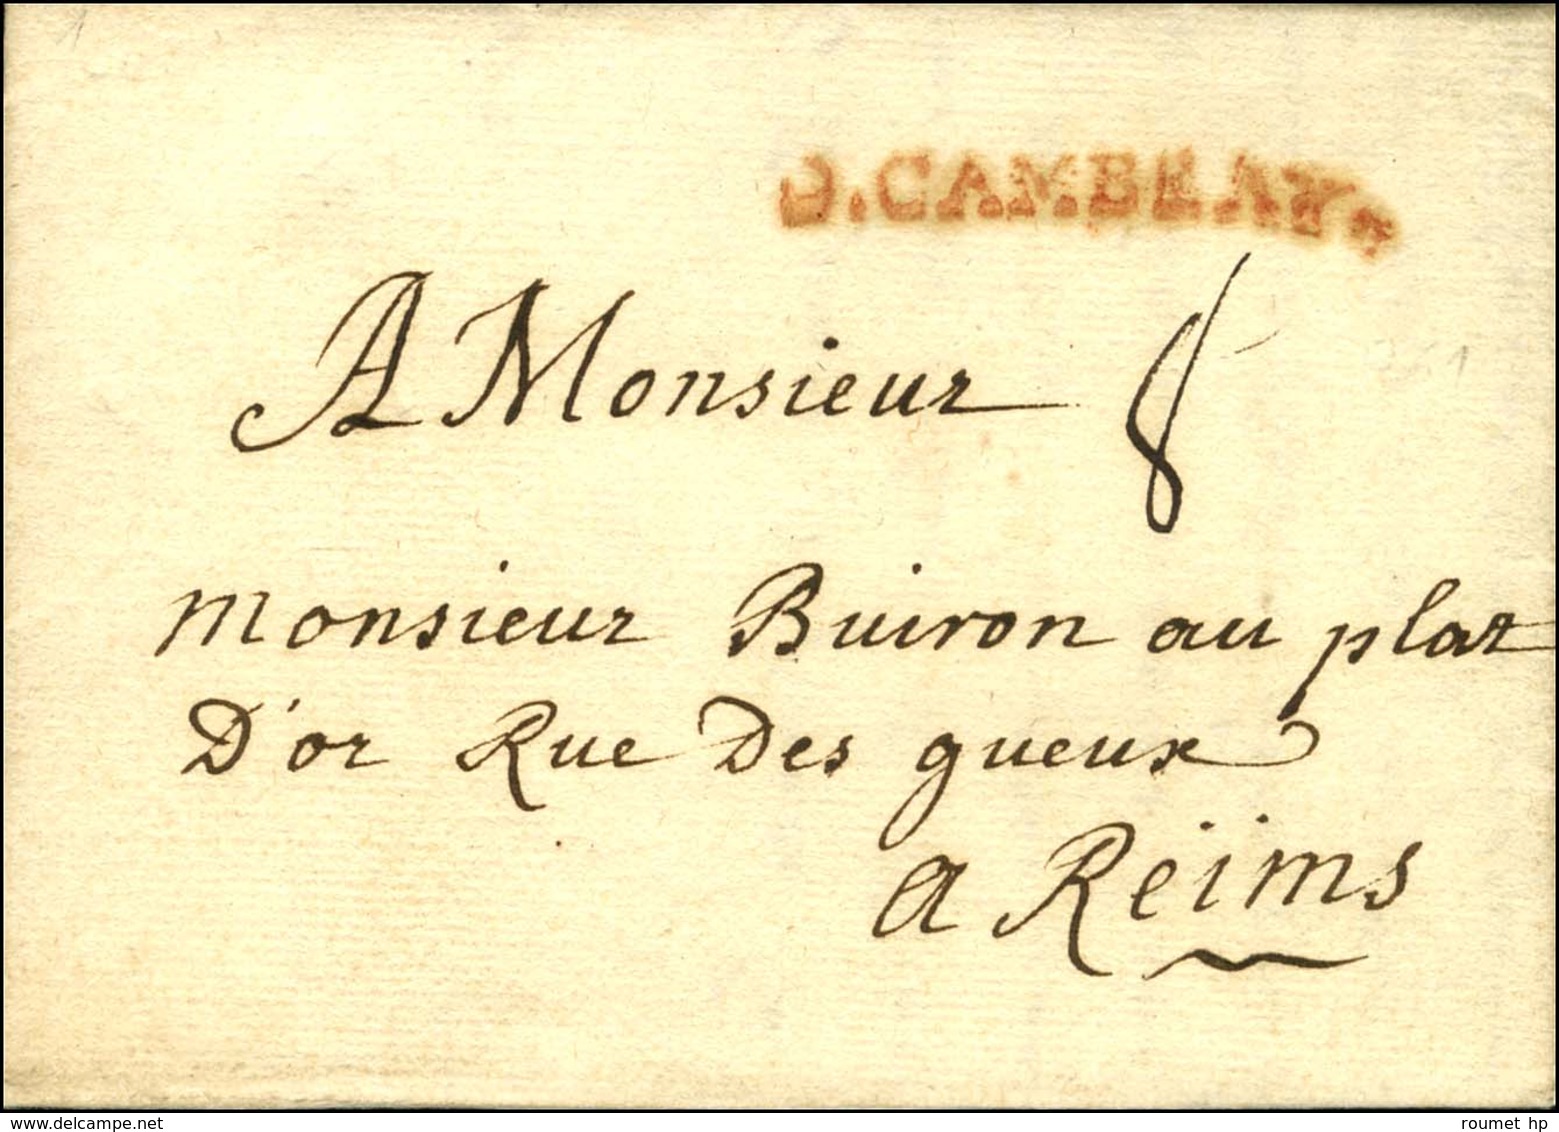 D.CAMBRAY.
A Monsieur 8
monsieur Buiron au plat
D'or Rue Des gueux
a Reïms
www.delcampe.net
roumet hp